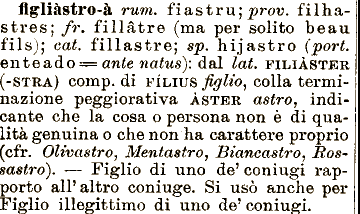 figliàstro-à rum. fiastru; prov. filha-
stres; fr. fillâtre (ma per solito beau
fils); cat. fillastre; sp. hijastro (port.
enteado = ante natus): dal lat. FILIÀSTER
(-STRA) comp. di FÍLIUS figlio, colla termi-
nazione peggiorativa ÀSTER astro, indi-
cante che la cosa o persona non è di qua-
lità genuina o che non ha carattere proprio
(cfr. Olivastro, Mentastro, Biancastro, Ros-
sastro). — Figlio di uno de' coniugi rap-
porto all'altro coniuge. Si usò anche per
Figlio illegittimo di uno de' coniugi.